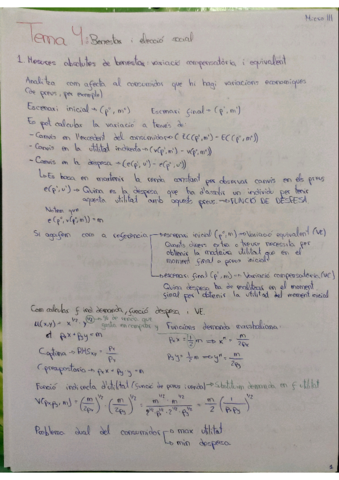 Micro III
Tema 4: Benestar i elecció social
1. Mesures absolutes de benestar: variació compensatòria i equivalent
Analitza com afecta al consumidor que hi hagi variacions econòmiques
(de preus, per exemple)
Escenari inicial → (p⁰, m⁰) Escenari final → (p¹, m¹)
Es pot calcular la variació a través de
- Canvis en l'excedent del consumidor → (EC(p¹,m¹) - EC(p⁰,m⁰))
- Canvis en la utilitat indirecta → (v(p¹,m¹) - v(p⁰,m⁰))
- Canvis en la despesa → (e(p¹,u¹) - e(p⁰,u⁰))
↳ Es basa en mantenir la renda constant per observar canvis en els preus
e(p¹,u⁰) → Quina és la despesa que ha d'assolir un individu per tenir
aquesta utilitat amb aquests preus → FUNCIÓ DE DESPESA
Notem que
e(p⁰, v(p⁰,m)) = m
Si agafem com a referència → escenari inicial (p⁰,m⁰) → Variació equivalent (VE)
Quants diners extra a haver necessita per
obtenir la mateixa utilitat que en el
moment final a preus inicials
→ escenari final (p¹,m¹) → Variació compensadora (VC)
Quina despesa ha de realitzar en el moment
final per obtenir la utilitat del moment inicial
Com calcular f. und. demanda, funció despesa i VE
u(x,y) = x^1/2 · y^1/2
st p_x x + p_y y = m
Funcions demanda marshalianes:
p_x x = 1/2 m → x^M = m/2p_x
C. òptima → RMS_xy = p_x/p_y
p_y y = 1/2 m → y^M = m/2p_y
C. pressupostària → p_x x + p_y y = m
Funció indirecta d'utilitat (funció de preus i renda) → Substituïm demandes en f. utilitat
V(p_x, p_y, m) = (m/2p_x)^1/2 · (m/2p_y)^1/2 = m^1/2 · m^1/2 / 2^1/2 · p_x^1/2 · 2^1/2 · p_y^1/2 = m/2 (1/p_x p_y)^1/2
Problema dual del consumidor → max utilitat
→ min despesa